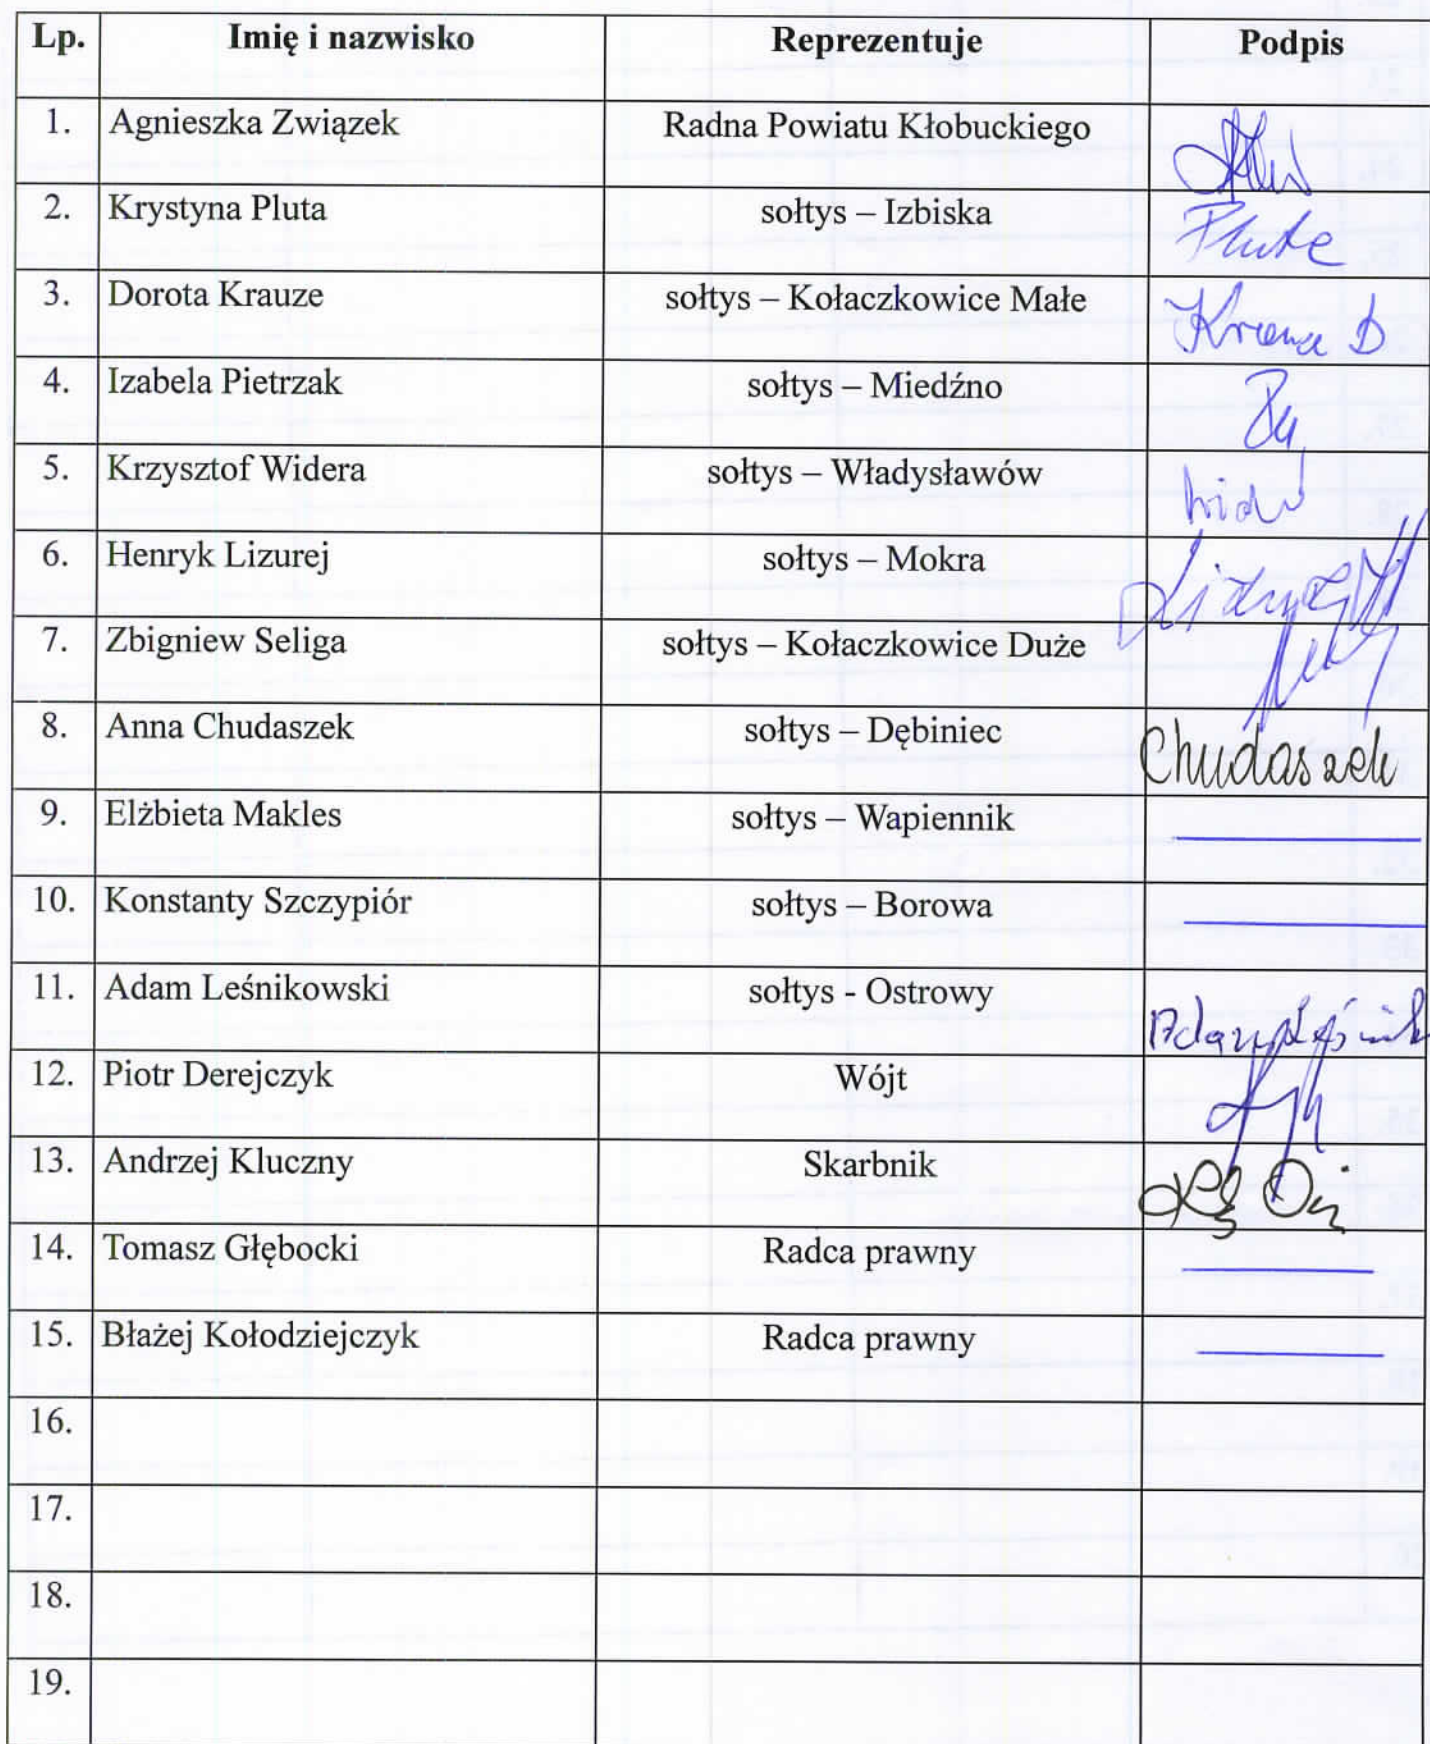 Lp. Imię i nazwisko Reprezentuje Podpis
1. Agnieszka Związek Radna Powiatu Kłobuckiego
2. Krystyna Pluta sołtys – Izbiska Pluta
3. Dorota Krauze sołtys – Kołaczkowice Małe Krauze D
4. Izabela Pietrzak sołtys – Miedźno
5. Krzysztof Widera sołtys – Władysławów
6. Henryk Lizurej sołtys – Mokra
7. Zbigniew Seliga sołtys – Kołaczkowice Duże
8. Anna Chudaszek sołtys – Dębiniec Chudaszek
9. Elżbieta Makles sołtys – Wapiennik
10. Konstanty Szczypiór sołtys – Borowa
11. Adam Leśnikowski sołtys - Ostrowy Adam
12. Piotr Derejczyk Wójt
13. Andrzej Kluczny Skarbnik
14. Tomasz Głębocki Radca prawny
15. Błażej Kołodziejczyk Radca prawny
16.
17.
18.
19.